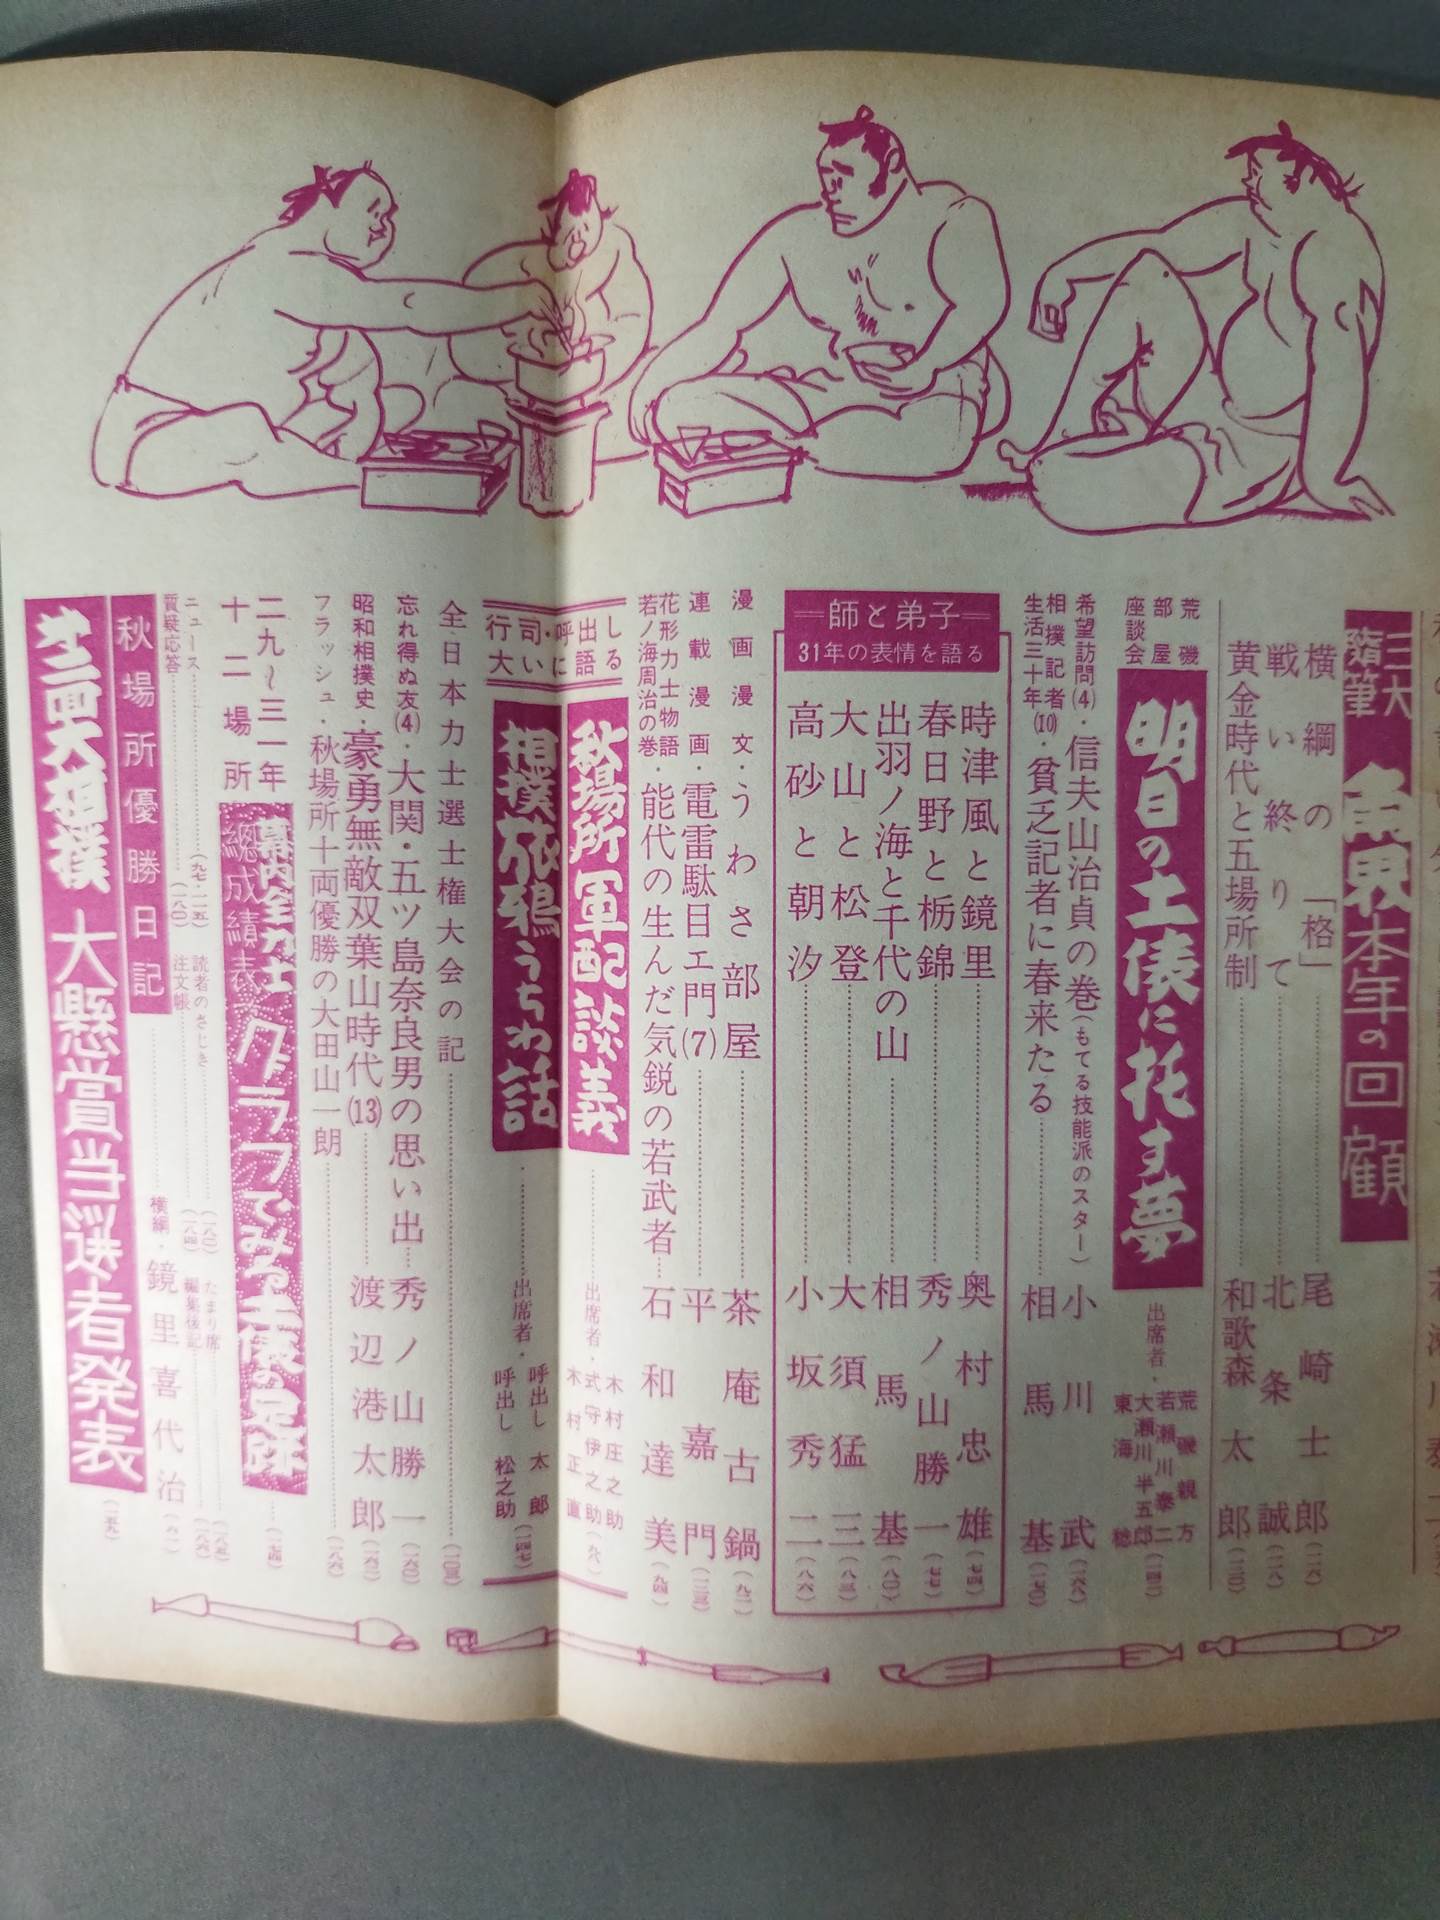 三大随筆
角界本年の回顧
横綱の「格」 尾崎士郎(一二六)
戦い終りて 北条誠(一二八)
黄金時代と五場所制 和歌森太郎(一三〇)
荒磯部屋座談会
明日の土俵に托す夢
出席者・荒磯親方
若瀬川泰二
大瀬川半五郎
東海稔(一四二)
希望訪問(4)・信夫山治貞の巻(もてる技能派のスター) 小川武(一六八)
相撲記者生活三十年(10)・貧乏記者に春来たる 相馬基(一七〇)
師と弟子
31年の表情を語る
時津風と鏡里 奥村忠雄(七四)
春日野と栃錦 秀ノ山勝一(七七)
出羽ノ海と千代の山 相馬基(八〇)
大山と松登 大須猛三(八三)
高砂と朝汐 小坂秀二(八六)
漫画漫文・うわさ部屋 茶庵古鍋(九二)
連載漫画・電雷駄目エ門(7) 平嘉門(一三三)
花形力士物語
若ノ海周治の巻・能代の生んだ気鋭の若武者 石和達美(九四)
行司・呼出し
大いに語る
秋場所軍配談義
出席者・木村庄之助
式守伊之助
木村正直
相撲旅鴉うちわ話
出席者・呼出し太郎
呼出し松之助(一四七)
全日本力士選士権大会の記(一〇三)
忘れ得ぬ友(4)・大関・五ツ島奈良男の思い出 秀ノ山勝一(一六〇)
昭和相撲史・豪勇無敵双葉山時代(13) 渡辺港太郎(一六二)
フラッシュ・秋場所十両優勝の大田山一朗(一八六)
二九〜三一年
十二場所
幕内全力士
総成績表
グラフでみる土俵の足跡(一七四)
ニュース(九七・一一五) 読者のさじき(一八〇) たまり席
質疑応答(一八〇) 注文帳(一八四) 編集後記
秋場所優勝日記 横綱・鏡里喜代治
大相撲
大懸賞当選者発表(一五九)